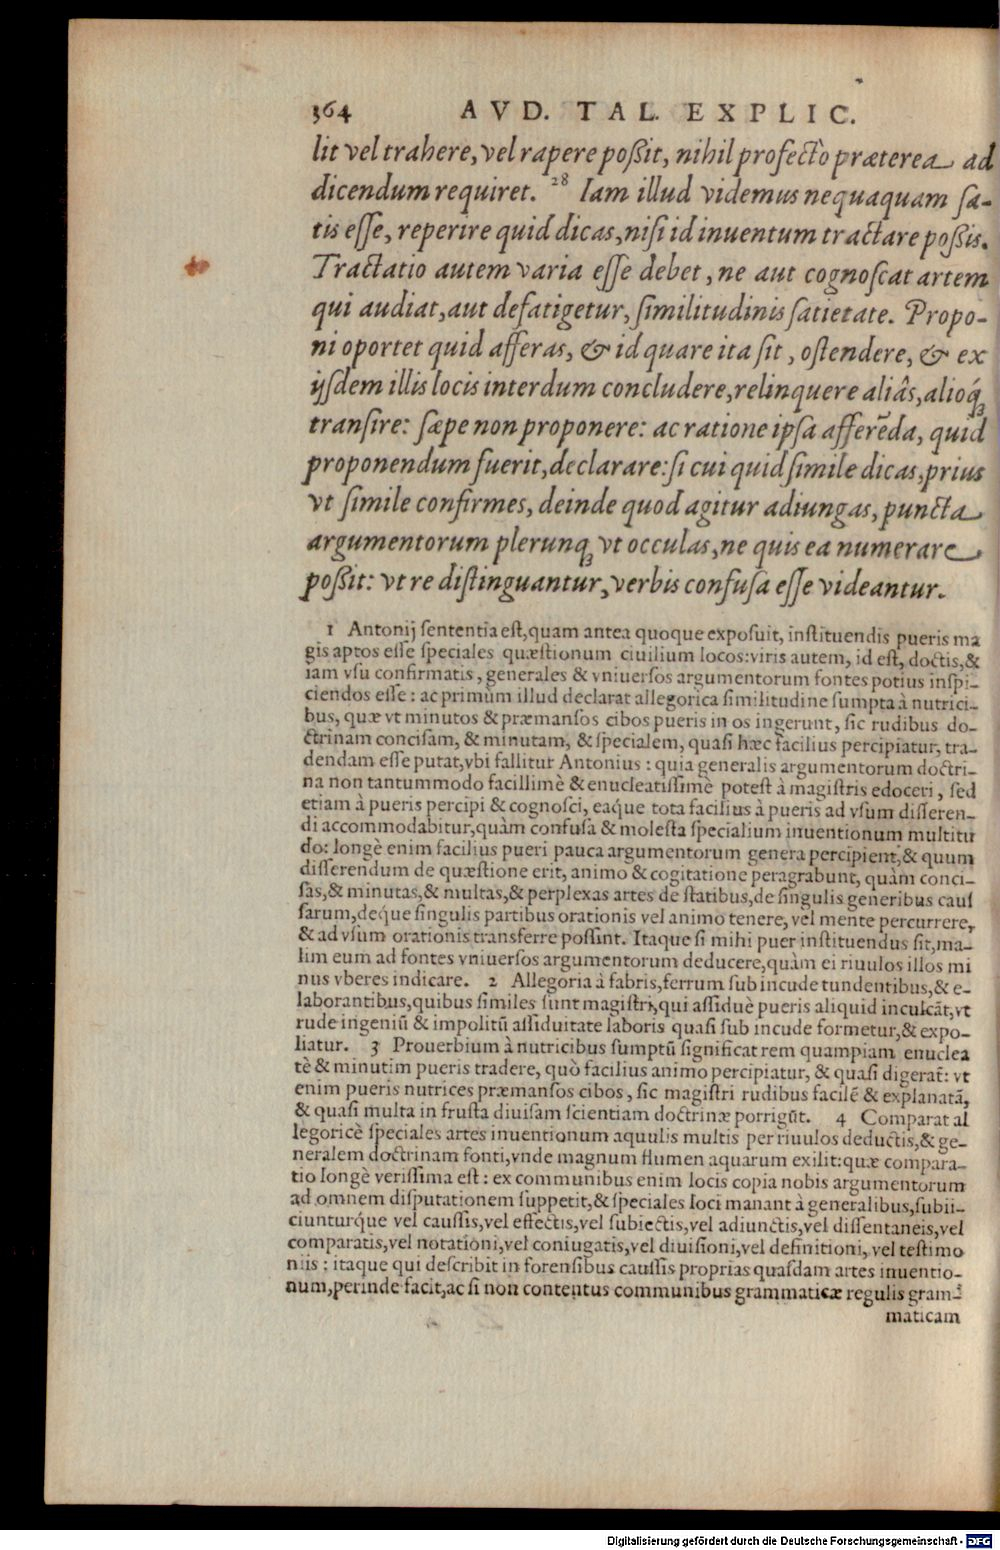 364 AVD. TAL. EXPLIC.
lit vel trahere, vel rapere poßit, nihil profectò præterea ad
dicendum requiret. 28 Iam illud videmus nequaquam sa-
tis esse, reperire quid dicas, nisi id inuentum tractare poßis.
Tractatio autem varia esse debet, ne aut cognoscat artem
qui audiat, aut defatigetur, similitudinis satietate. Propo-
ni oportet quid afferas, & id quare ita sit, ostendere, & ex
ijsdem illis locis interdum concludere, relinquere aliâs, alioq́;
transire: sæpe non proponere: ac ratione ipsa afferēda, quid
proponendum fuerit, declarare: si cui quid simile dicas, prius
vt simile confirmes, deinde quod agitur adiungas, puncta
argumentorum plerunq; vt occulas, ne quis ea numerare
poßit: vt re distinguantur, verbis confusa esse videantur.
1 Antonij sententia est, quam antea quoque exposuit, instituendis pueris ma
gis aptos esse speciales quæstionum ciuilium locos: viris autem, id est, doctis, &
iam vsu confirmatis, generales & vniuersos argumentorum fontes potius inspi-
ciendos esse: ac primùm illud declarat allegorica similitudine sumpta à nutrici-
bus, quæ vt minutos & præmansos cibos pueris in os ingerunt, sic rudibus do-
ctrinam concisam, & minutam, & specialem, quasi hæc facilius percipiatur, tra-
dendam esse putat, vbi fallitur Antonius: quia generalis argumentorum doctri-
na non tantummodo facillimè & enucleatissimè potest à magistris edoceri, sed
etiam à pueris percipi & cognosci, eaq́ue tota facilius à pueris ad vsum disseren-
di accommodabitur, quàm confusa & molesta specialium inuentionum multitu
do: longè enim facilius pueri pauca argumentorum genera percipient, & quum
disserendum de quæstione erit, animo & cogitatione peragrabunt, quàm conci-
sas, & minutas, & multas, & perplexas artes de statibus, de singulis generibus caus
sarum, deq́ue singulis partibus orationis vel animo tenere, vel mente percurrere,
& ad vsum orationis transferre possint. Itaque si mihi puer instituendus sit, ma-
lim eum ad fontes vniuersos argumentorum deducere, quàm ei riuulos illos mi
nus vberes indicare. 2 Allegoria à fabris, ferrum sub incude tundentibus, & e-
laborantibus, quibus similes sunt magistri, qui assiduè pueris aliquid inculcāt, vt
rude ingeniū & impolitū assiduitate laboris quasi sub incude formetur, & expo-
liatur. 3 Prouerbium à nutricibus sumptū significat rem quampiam enuclea
tè & minutim pueris tradere, quò facilius animo percipiatur, & quasi digerat: vt
enim pueris nutrices præmansos cibos, sic magistri rudibus facilē & explanatā,
& quasi multa in frusta diuisam scientiam doctrinæ porrigūt. 4 Comparat al
legoricè speciales artes inuentionum aquulis multis per riuulos deductis, & ge-
neralem doctrinam fonti, vnde magnum flumen aquarum exilit: quæ compara-
tio longè verissima est: ex communibus enim locis copia nobis argumentorum
ad omnem disputationem suppetit, & speciales loci manant à generalibus, subii-
ciunturq́ue vel caussis, vel effectis, vel subiectis, vel adiunctis, vel dissentaneis, vel
comparatis, vel notationi, vel coniugatis, vel diuisioni, vel definitioni, vel testimo
niis: itaque qui describit in forensibus caussis proprias quasdam artes inuentio-
num, perinde facit, ac si non contentus communibus grammaticæ regulis gram-
maticam
Digitalisierung gefördert durch die Deutsche Forschungsgemeinschaft - DFG